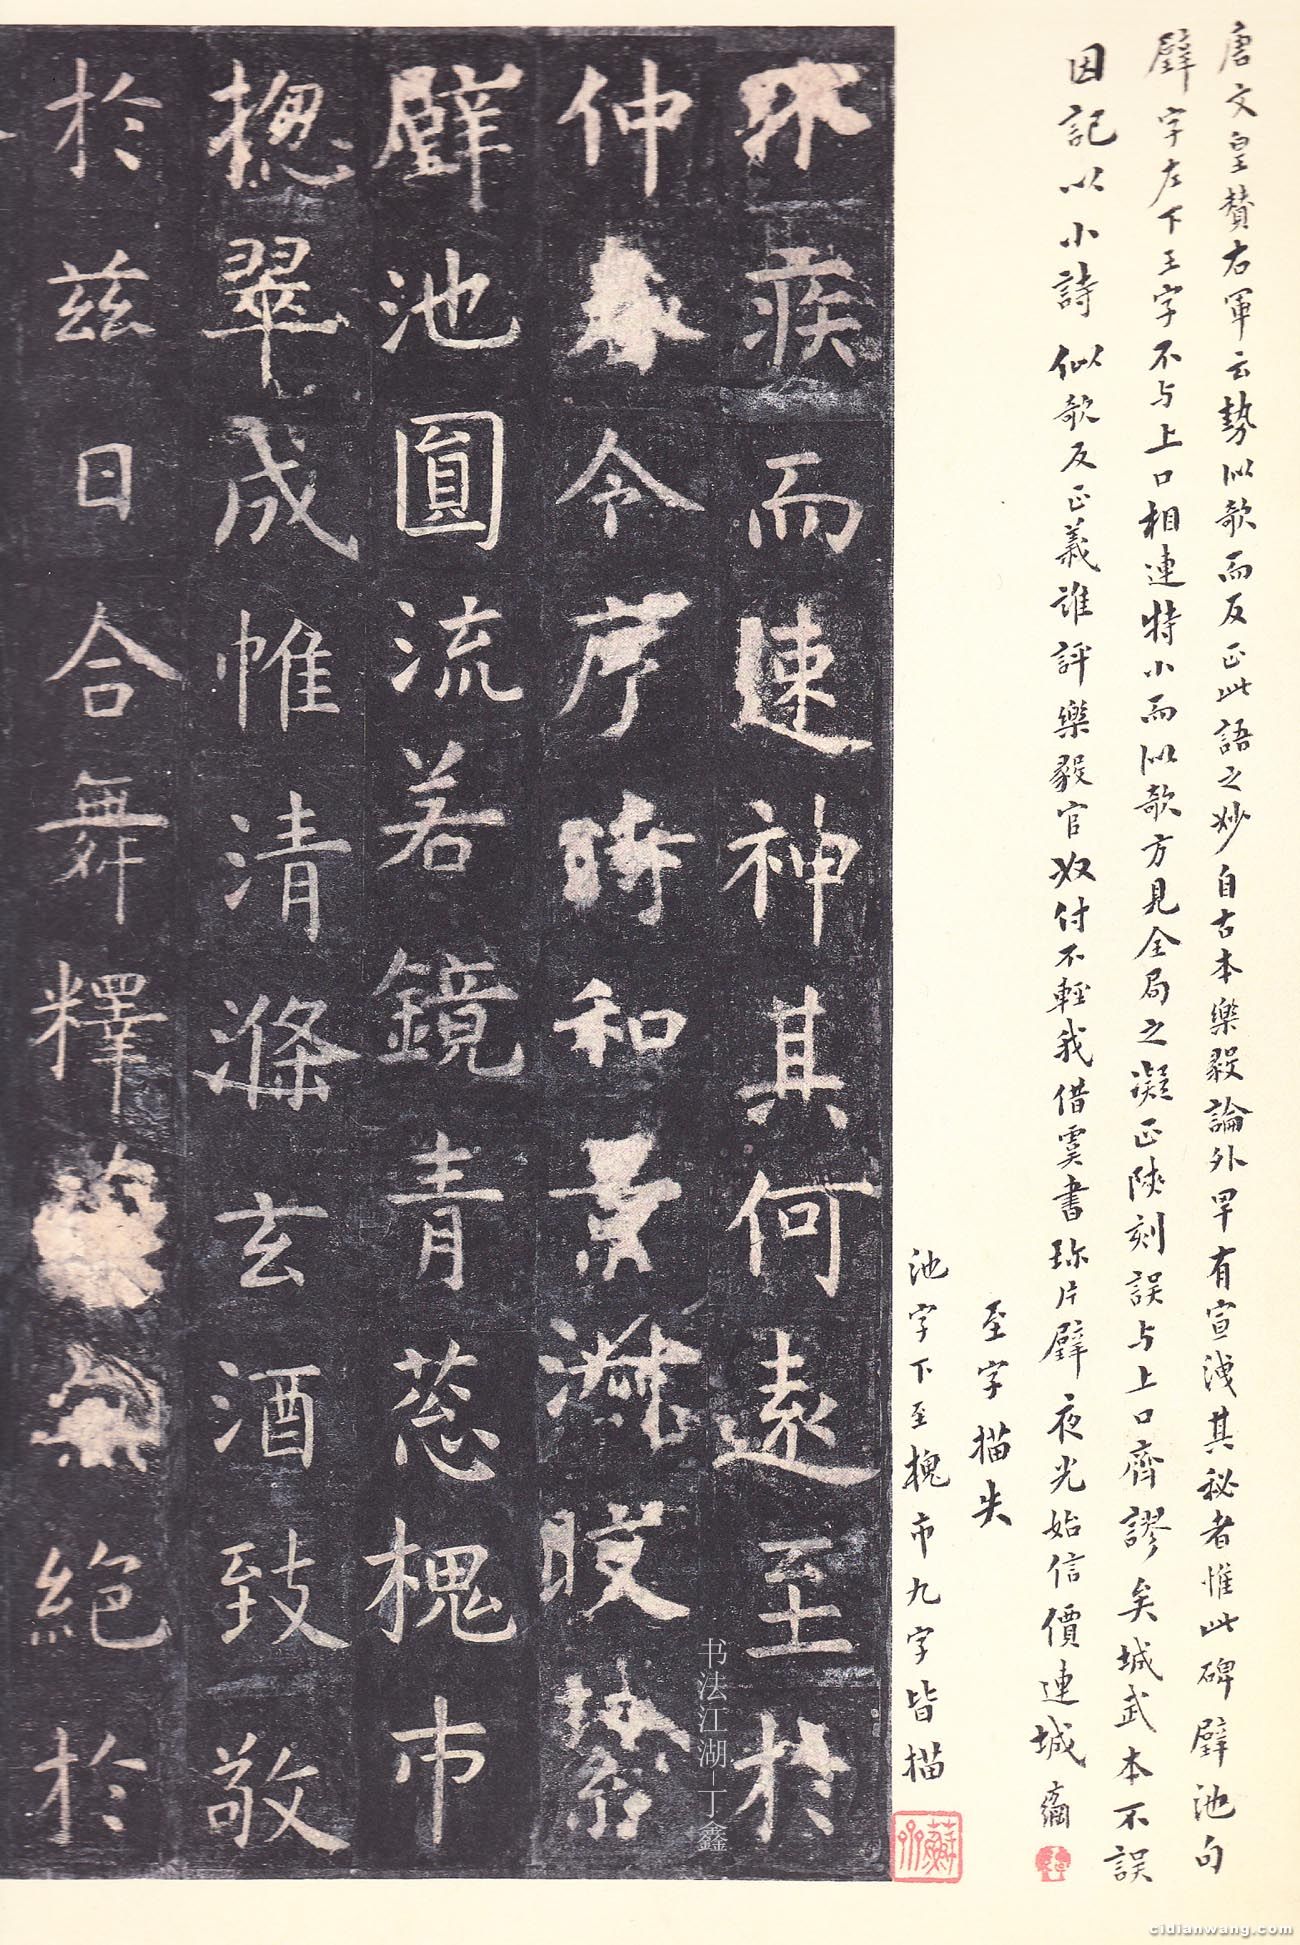 唐文皇贊右軍云勢似欹而反正此語之妙自古本樂毅論外罕有宣洩其秘者惟此碑璧池句
璧字左下王字不与上口相連特小而似欹方見全局之凝正陝刻誤与上口齊謬矣城武本不誤
因記以小詩似欹反正義誰評樂毅官奴付不輕我借虞書珎片璧夜光始信價連城 綱
至字描失
池字下至槐市九字皆描
不疾而速神其何遠至於
仲春令序時和景淑暾
璧池圓流若鏡青葱槐市
揔翠成帷清滌玄酒致敬
於兹日合舞釋無絶於
蘇齋
书法江湖-丁鑫
cidianwang.com